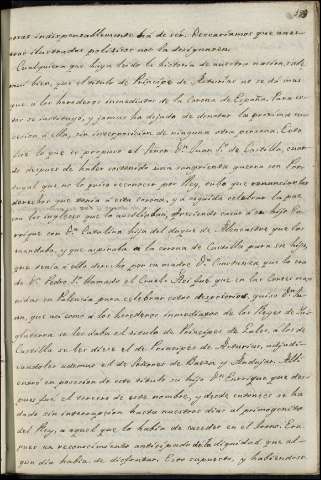 noras indispensablemente há de ser. Desearíamos que unos
tres ilustrados políticos nos la designasen.
Cualquiera que haya leído la historia de nuestra nacion, sabe
muí bien, que el título de Príncipe de Asturias no se dá mas
que á los herederos inmediatos de la corona de España. Para es-
to se instituyó, y jamas ha dejado de denotar la próxima su-
cesion á ella, sin interposicion de ninguna otra persona. Esto
fue lo que se propuso el Señor Dn. Juan 1º de Castilla, cuan-
do despues de haber sostenido una sangrienta guerra con Por-
tugal que no lo quiso reconocer por Rey, tubo que renunciar los
derechos que tenia á esta corona, y en seguida celebrar la paz
con los ingleses que la auxiliaban, ofreciendo casar á su hijo En-
rique con Dª Catalina hija del duque de Alencastre que los
mandaba, y que aspiraba á la corona de Castilla para su hija,
que tenia á ella derecho por su madre Dª Constanza que lo era
de Dn. Pedro 1º llamado el Cruel. Asi fue que en las Cortes reu-
nidas en Palencia para celebrar estos desposorios, quiso Dn. Ju-
an, que asi como á los herederos inmediatos de los Reyes de In-
glaterra se les daba el título de Príncipes de Gales, á los de
Castilla se les diese el de Príncipes de Asturias, adjudi-
candoles ademas el de Señores de Baeza y Andujar. Alli
entró en posesion de este título su hijo Dn. Enrique que des-
pues fué el tercero de este nombre, y desde entonces se ha
dado sin interrupcion hasta nuestros dias al primogenito
del Rey, ó aquel que le habia de suceder en el trono. Era
pues un reconocimiento anticipado de la dignidad que al-
gun dia habia de disfrutar. Esto supuesto, y habiendose